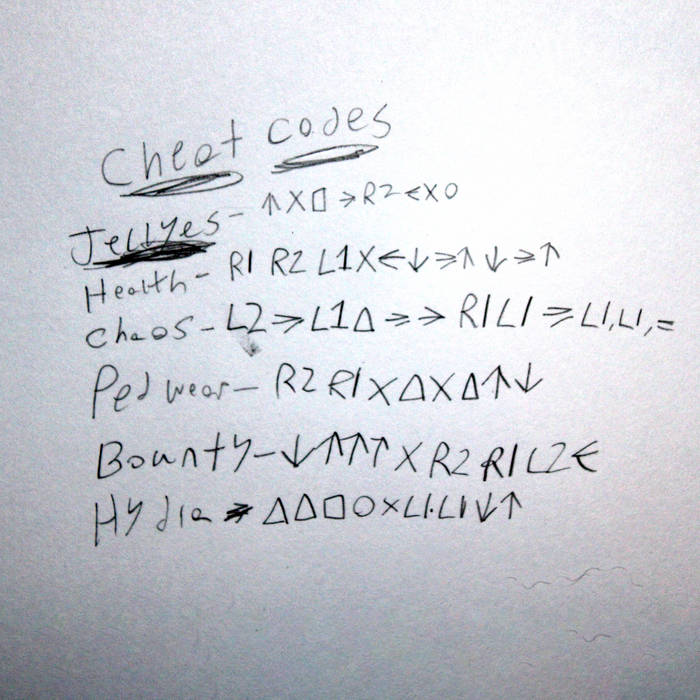 Cheat Codes
Jellyes - ↑ X □ → R2 ← X O
Health - R1 R2 L1 X ← ↓ → ↑ ↓ → ↑
Chaos - L2 → L1 △ → → R1 L1 → L1, L1, =
Ped wear - R2 R1 X △ X △ ↑ ↓
Bounty - ↓ ↑ ↑ ↑ X R2 R1 L2 ←
△ △ □ O X L1. L1 ↓ ↑